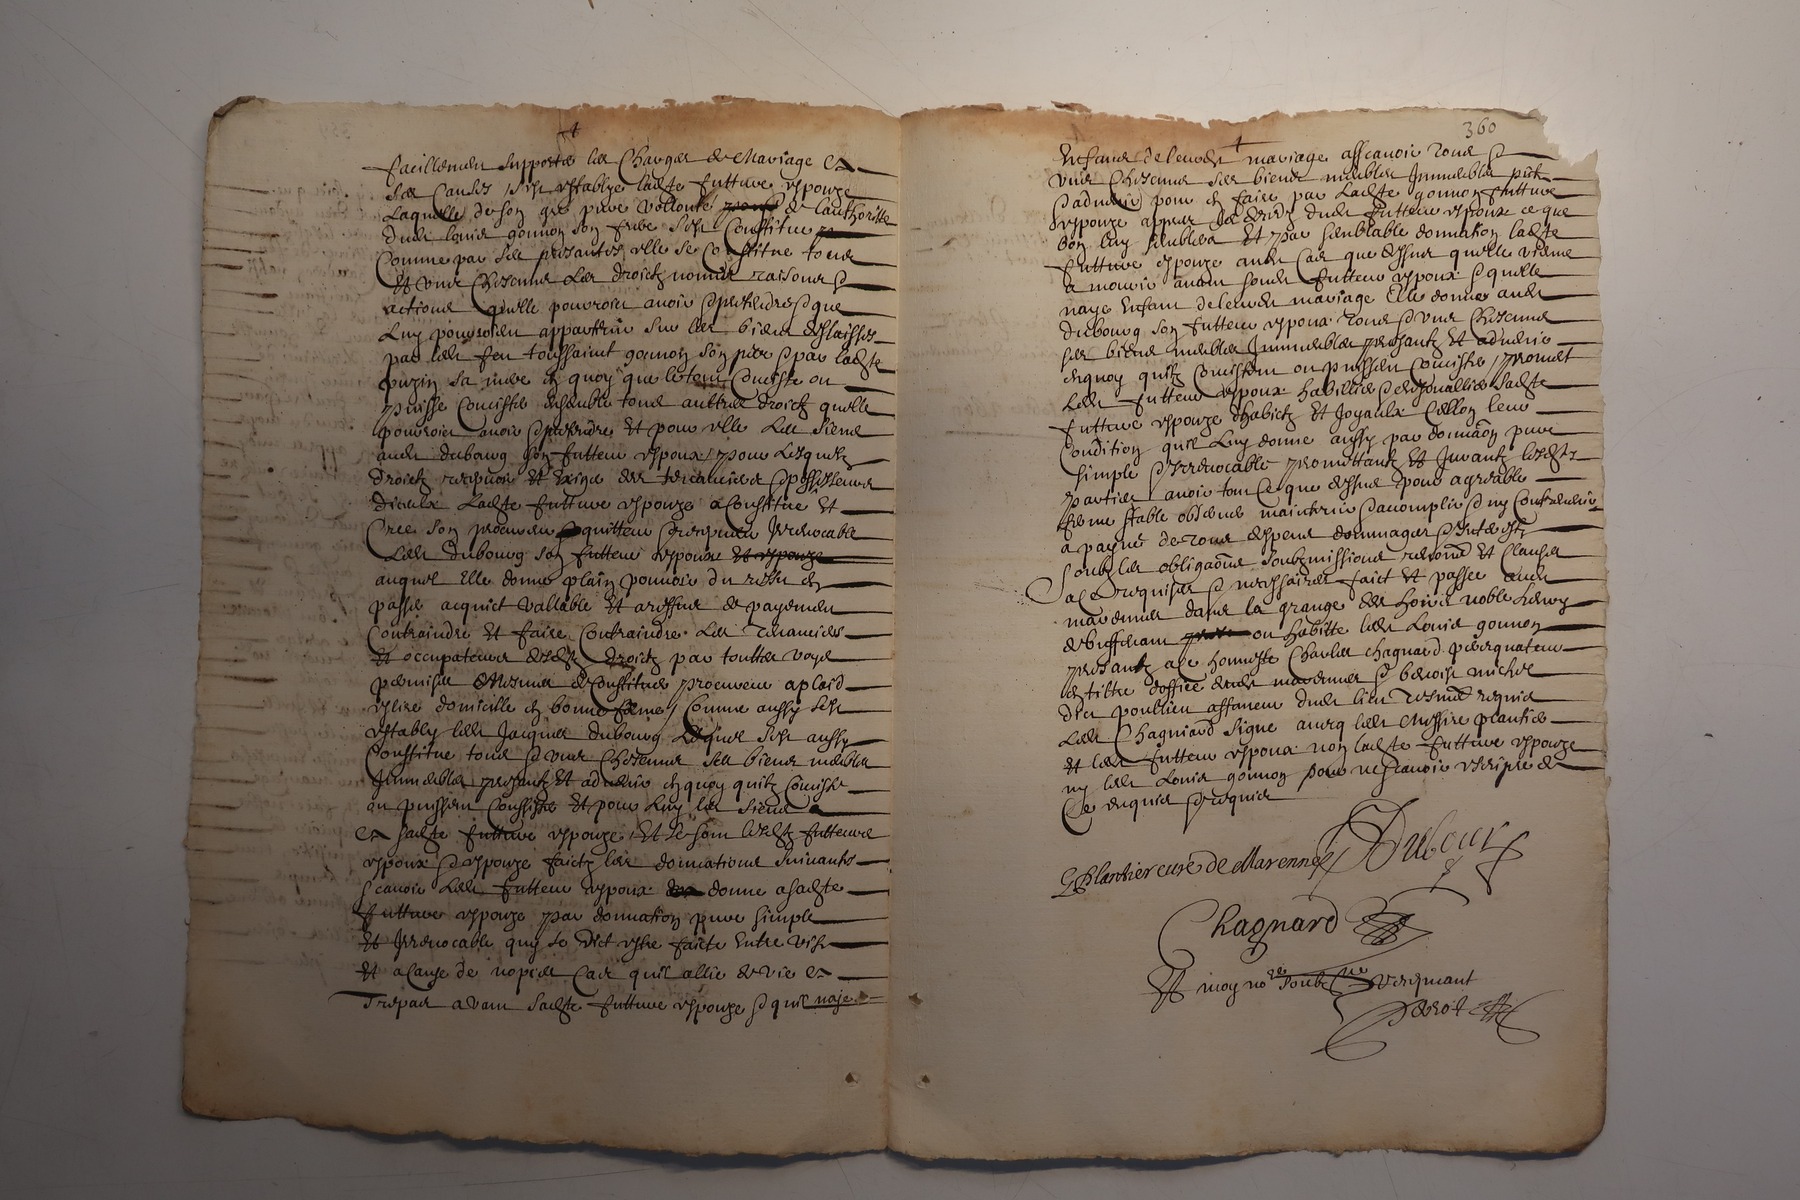 facillement supporter les Charges de Mariage Et
Ses Causes s'est establye ladte future espouze
Laquelle de son gré pure vollonté de l'authorité
dudt louis gonnon son frere s'est Constitue
Comme par ses presantes elle se Constitue tous
Et uns Chescungs ses droictz noms raisons &
actions quelle pouvoit avoir & pretendre & que
Luy pouvoient appartenir sur les biens dellaissés
par ledt feu toussaint gonnon son pere & par ladte
sa mere en quoy que le tout Conciste ou
puisse Concister ensemble tous aultres droictz quelle
pouvoit avoir & pretendre Et pour elle Les siens
audt dubourg son futteur espoux pour Lesquelz
droictz recepvoir Et exiger des tenanciers & possesseurs
d'iceulx Ladte future espouze a Constitué Et
Créé son procureur quitteur Irrevocable
Ledt dubourg son futteur espoux
auquel Elle donne plain pouvoir du receu en
passer acquict vallable Et a reffus de payement
Contraindre Et faire Contraindre Les tenanciers
Et occupateurs desdtz droictz par touttes voyes
permises & Constituer procureur a plaid
eslire domicille en bonne forme Comme aussy s'est
estably ledt Jacques dubourg Lequel s'est aussy
Constitue tous & uns Chescungs ses biens meubles
Immeubles presantz Et advenir en quoy quilz Conciste
ou puissent Conssister Et pour Luy les siens a
Et sadte future espouze Et se sont lesdtz futteurs
espoux & espouze faictz les donnations suivants
scavoir Ledt futteur espoux donne a sadte
future espouze par donnation pure simple
Et Irrevocable quy se dict estre faicte Entre vifz
Et a cause de nopces Cas quil allie de vie Et
Trespas avant sadte future espouze & quil naje
360
Enfans de leurdt mariage assçavoir tous &
uns Chescungs ses biens meubles Immeubles pntz
& advenir pour en faire par Ladte gonnon future
espouze appres le deces dudt futteur espoux ce que
bon luy semblera Et par semblable donnation ladte
future espouze audt Cas que dessus quelle vienne
a mourir avant sondt futteur espoux & quelle
naye Enfant de leurdt mariage Elle donne audt
dubourg son futteur espoux tous & uns Chescungs
ses biens meubles Immeubles presantz Et advenir
en quoy quilz Concistent ou puissent Concister promet
Ledt futteur espoux habiller & Enjoualler sadte
future espouze d'habictz Et Joyaulx Cellon leur
Condition quil Luy donne aussy par donnaon pure
simple & Irrevocable promettantz Et Jurantz lesdts
parties avoir tout Ce que dessus pour agreable
ferme stable observer maintenir & acomplir & ny Contrevenir
a payne de tous despens dommages & Interestz
soubz les obligaons soubzmissions renonons Et Clauses
a Ce requises & necessaires faict Et passé audt
marennes dans la grange des hoirs noble
ou habitte ledt Louis gonnon
presantz a Ce honneste Charles chagnard perequateur
en tiltre d'office dudt marennes & benoist michel
affaneur dudt lieu tesmoins requis
Ledt Chagnard signé avecq ledt messire plantier
Et ledt futteur espoux non ladte future espouze
ny ledt Louis gonnon pour ne sçavoir escripre de
Ce enquis & requis
Plantier curé de Marennes Dubour
Chagnard
Et moy nore soubzne recepvant